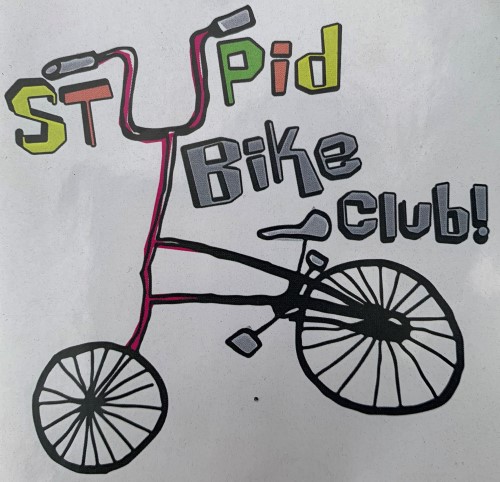 STUpid
Bike
Club!